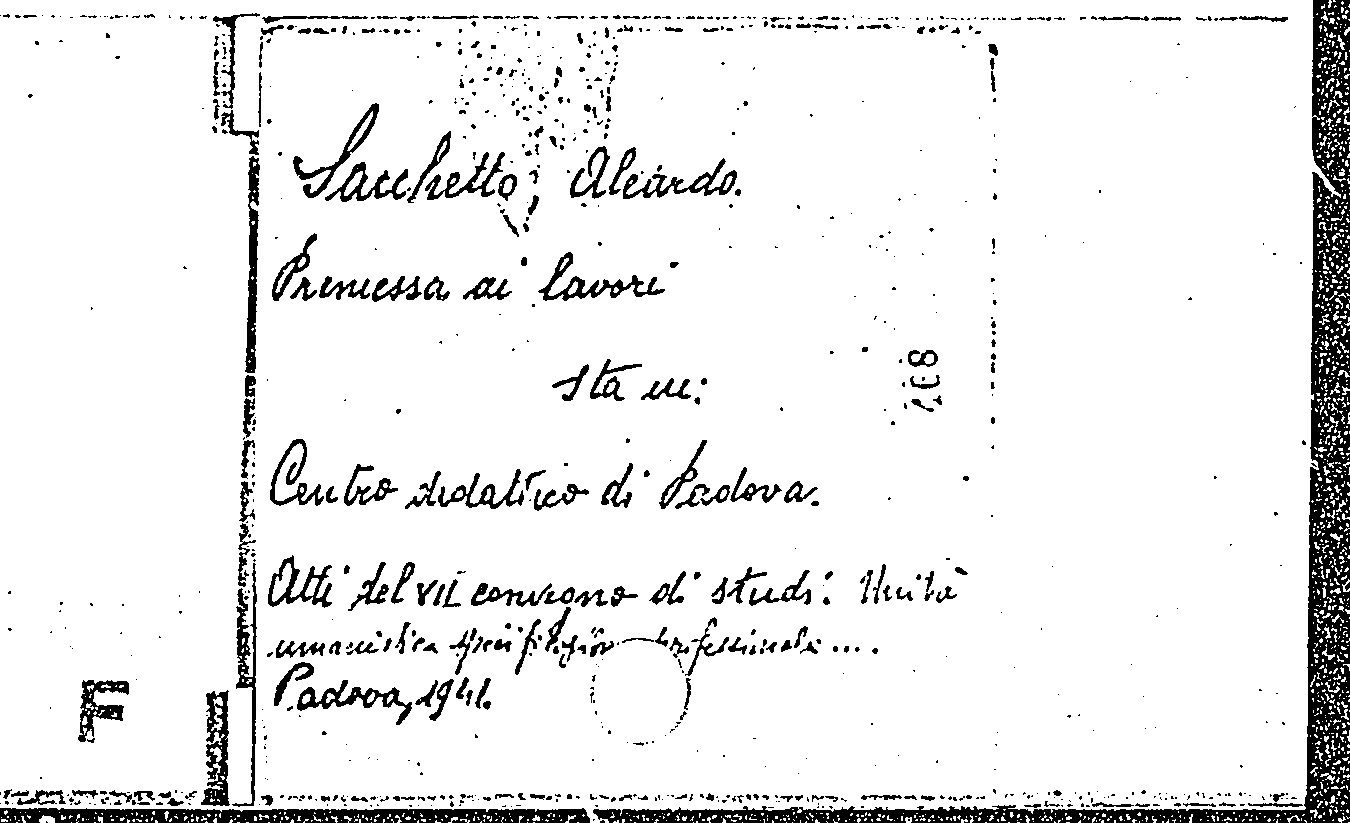 Sacchetto, Aleardo.
Premessa ai lavori
sta in:
Centro didattico di Padova.
Atti del VII convegno di studi: Unità
umanistica professionale ....
Padova, 1941.
F